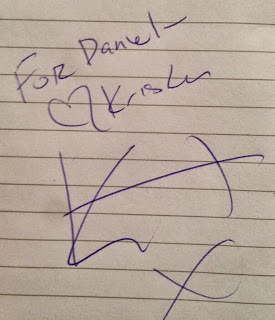 FOR Daniel-
♡ Kristen
X